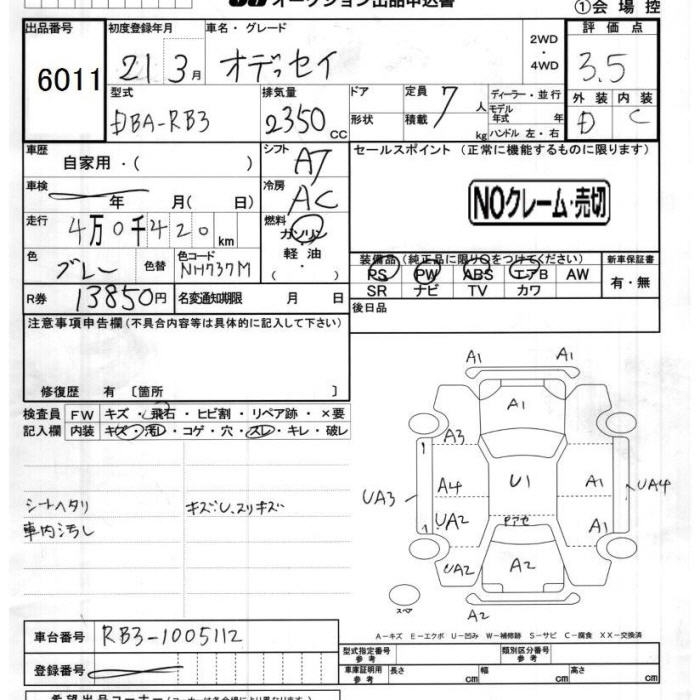 オークション出品申込書
①会場控
出品番号 初度登録年月 車名・グレード 2WD ・ 4WD 評価点
6011 21 3月 オデッセイ 3.5
型式 排気量 ドア 定員 7人 ディーラー・並行 外装 内装
DBA-RB3 2350cc 形状 積載 kg モデル年式 年 ハンドル 左・右 D C
車歴 自家用・( ) シフト AT セールスポイント (正常に機能するものに限ります)
車検 年 月( 日) 冷房 AC
NOクレーム・売切
走行 4万0千420km 燃料 ガソリン
色 色替 色コード NH737M 軽油 ・( )
装備品(純正品に限り○をつけてください) 新車保証書
PS PW ABS エアB AW 有・無
SR ナビ TV カワ
R券 13850円 名変通知期限 月 日
後日品
注意事項申告欄(不具合内容等は具体的に記入して下さい)
修復歴 有 [箇所 ]
検査員 FW キズ・飛石・ヒビ割・リペア跡・×要
記入欄 内装 キズ・汚レ・コゲ・穴・スレ・キレ・破レ
シートヘタリ キズ.U.スリキズ
車内汚し
A1 A1
A1
A3
UA3 A4 U1 A1 UA4
UA2 A1
UA2 A2
A2
スペア
A-キズ E-エクボ U-凹み W-補修跡 S-サビ C-腐食 XX-交換済
車台番号 RB3-1005112
型式指定番号 参考 類別区分番号 参考
登録番号
車庫証明用 参考 長さ cm 幅 cm 高さ cm
希望出品コーナー